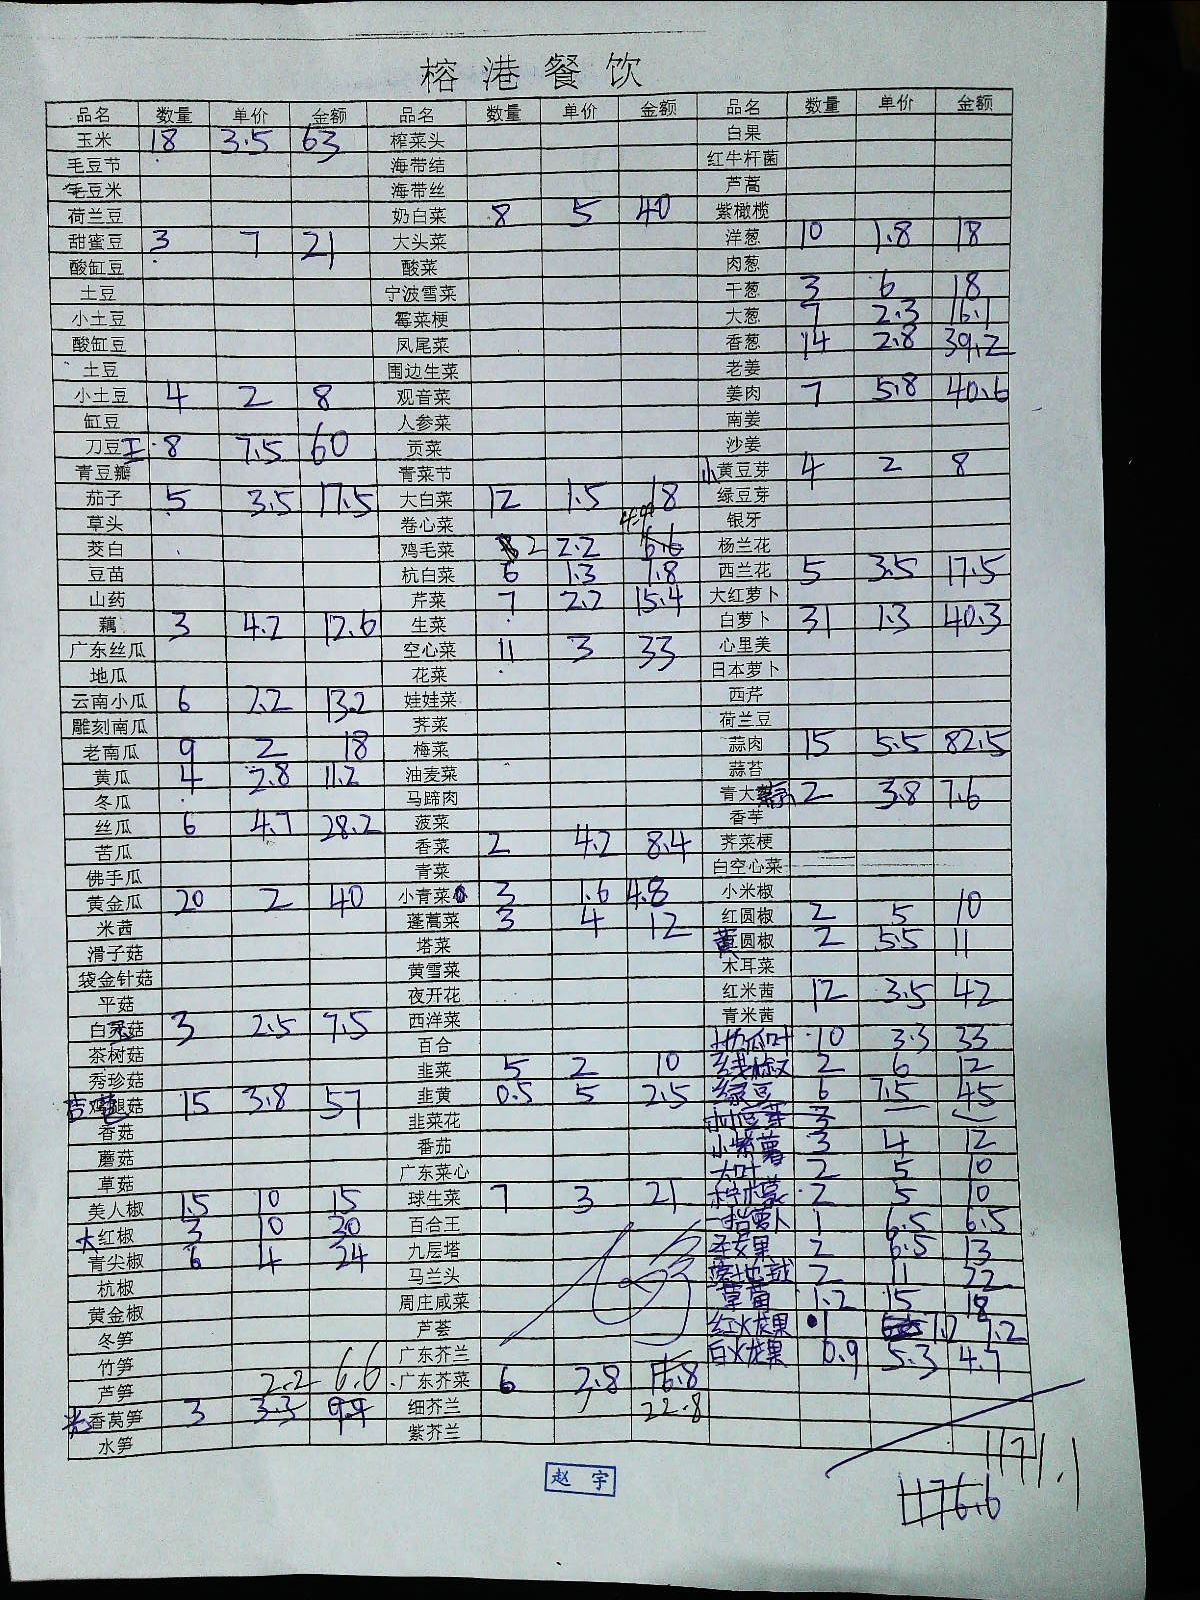 榕港餐饮
品名 数量 单价 金额 品名 数量 单价 金额 品名 数量 单价 金额
玉米 18 3.5 63 榨菜头 白果
毛豆节 海带结 红牛杆菌
毛豆米 海带丝 芦蒿
荷兰豆 奶白菜 8 5 40 紫橄榄
甜蜜豆 3 7 21 大头菜 洋葱 10 1.8 18
酸缸豆 酸菜 肉葱
土豆 宁波雪菜 干葱 3 6 18
小土豆 霉菜梗 大葱 7 2.3 16.1
酸缸豆 凤尾菜 香葱 14 2.8 39.2
土豆 围边生菜 老姜
小土豆 4 2 8 观音菜 姜肉 7 5.8 40.6
缸豆 人参菜 南姜
刀豆 8 7.5 60 贡菜 沙姜
青豆瓣 青菜节 小黄豆芽 4 2 8
茄子 5 3.5 17.5 大白菜 12 1.5 18 绿豆芽
草头 卷心菜 银牙
茭白 鸡毛菜 2 2.2 6.6 杨兰花
豆苗 杭白菜 6 1.3 7.8 西兰花 5 3.5 17.5
山药 芹菜 7 2.2 15.4 大红萝卜
藕 3 4.2 12.6 生菜 白萝卜 31 1.3 40.3
广东丝瓜 空心菜 11 3 33 心里美
地瓜 花菜 日本萝卜
云南小瓜 6 2.2 13.2 娃娃菜 西芹
雕刻南瓜 荠菜 荷兰豆
老南瓜 9 2 18 梅菜 蒜肉 15 5.5 82.5
黄瓜 4 2.8 11.2 油麦菜 蒜苔
冬瓜 马蹄肉 青大蒜 2 3.8 7.6
丝瓜 6 4.7 28.2 菠菜 香芋
苦瓜 香菜 2 4.2 8.4 荠菜梗
佛手瓜 青菜 白空心菜
黄金瓜 20 2 40 小青菜 3 1.6 4.8 小米椒
米茜 蓬蒿菜 3 4 12 红圆椒 2 5 10
滑子菇 塔菜 黄圆椒 2 5.5 11
袋金针菇 黄雪菜 木耳菜
平菇 夜开花 红米茜 12 3.5 42
白灵菇 3 2.5 7.5 西洋菜 青米茜
茶树菇 百合 地瓜叶 10 3.3 33
秀珍菇 韭菜 5 2 10 线椒 2 6 12
杏鲍菇 15 3.8 57 韭黄 0.5 5 2.5 绿豆 6 7.5 45
香菇 韭菜花 小豆芽 3
蘑菇 番茄 小紫薯 3 4 12
草菇 广东菜心 大叶 2 5 10
美人椒 1.5 10 15 球生菜 7 3 21 柠檬 2 5 10
大红椒 3 10 30 百合王 一指萝卜 1 6.5 6.5
青尖椒 6 4 24 九层塔 圣女果 2 6.5 13
杭椒 马兰头 2 11 22
黄金椒 周庄咸菜 草莓 1.2 15 18
冬笋 芦荟 红火龙果 1 7.2 7.2
竹笋 广东芥兰 白火龙果 0.9 5.3 4.7
芦笋 2.2 6.6 广东芥菜 6 3.8 16.8
香莴笋 3 3.3 9.9 细芥兰 22.8
水笋 紫芥兰
1171.1
赵宇
1176.6